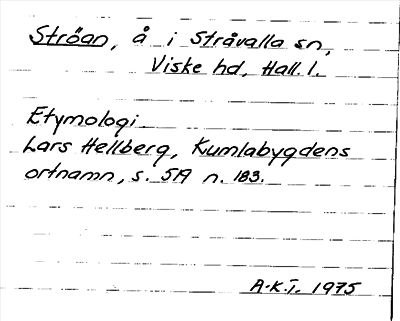 Ströan, å i Stråvalla sn,
Viske hd, Hall. l.
Etymologi
Lars Hellberg, Kumlabygdens
ortnamn, s. 59 n. 183.
A-K.T. 1975